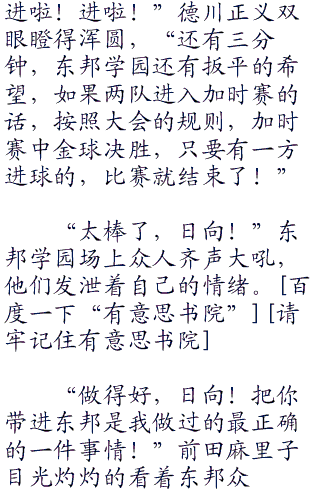 进啦！进啦！”德川正义双
眼瞪得浑圆，“还有三分
钟，东邦学园还有扳平的希
望，如果两队进入加时赛的
话，按照大会的规则，加时
赛中金球决胜，只要有一方
进球的，比赛就结束了！”
“太棒了，日向！”东
邦学园场上众人齐声大吼，
他们发泄着自己的情绪。[百
度一下“有意思书院”][请
牢记住有意思书院]
“做得好，日向！把你
带进东邦是我做过的最正确
的一件事情！”前田麻里子
目光灼灼的看着东邦众